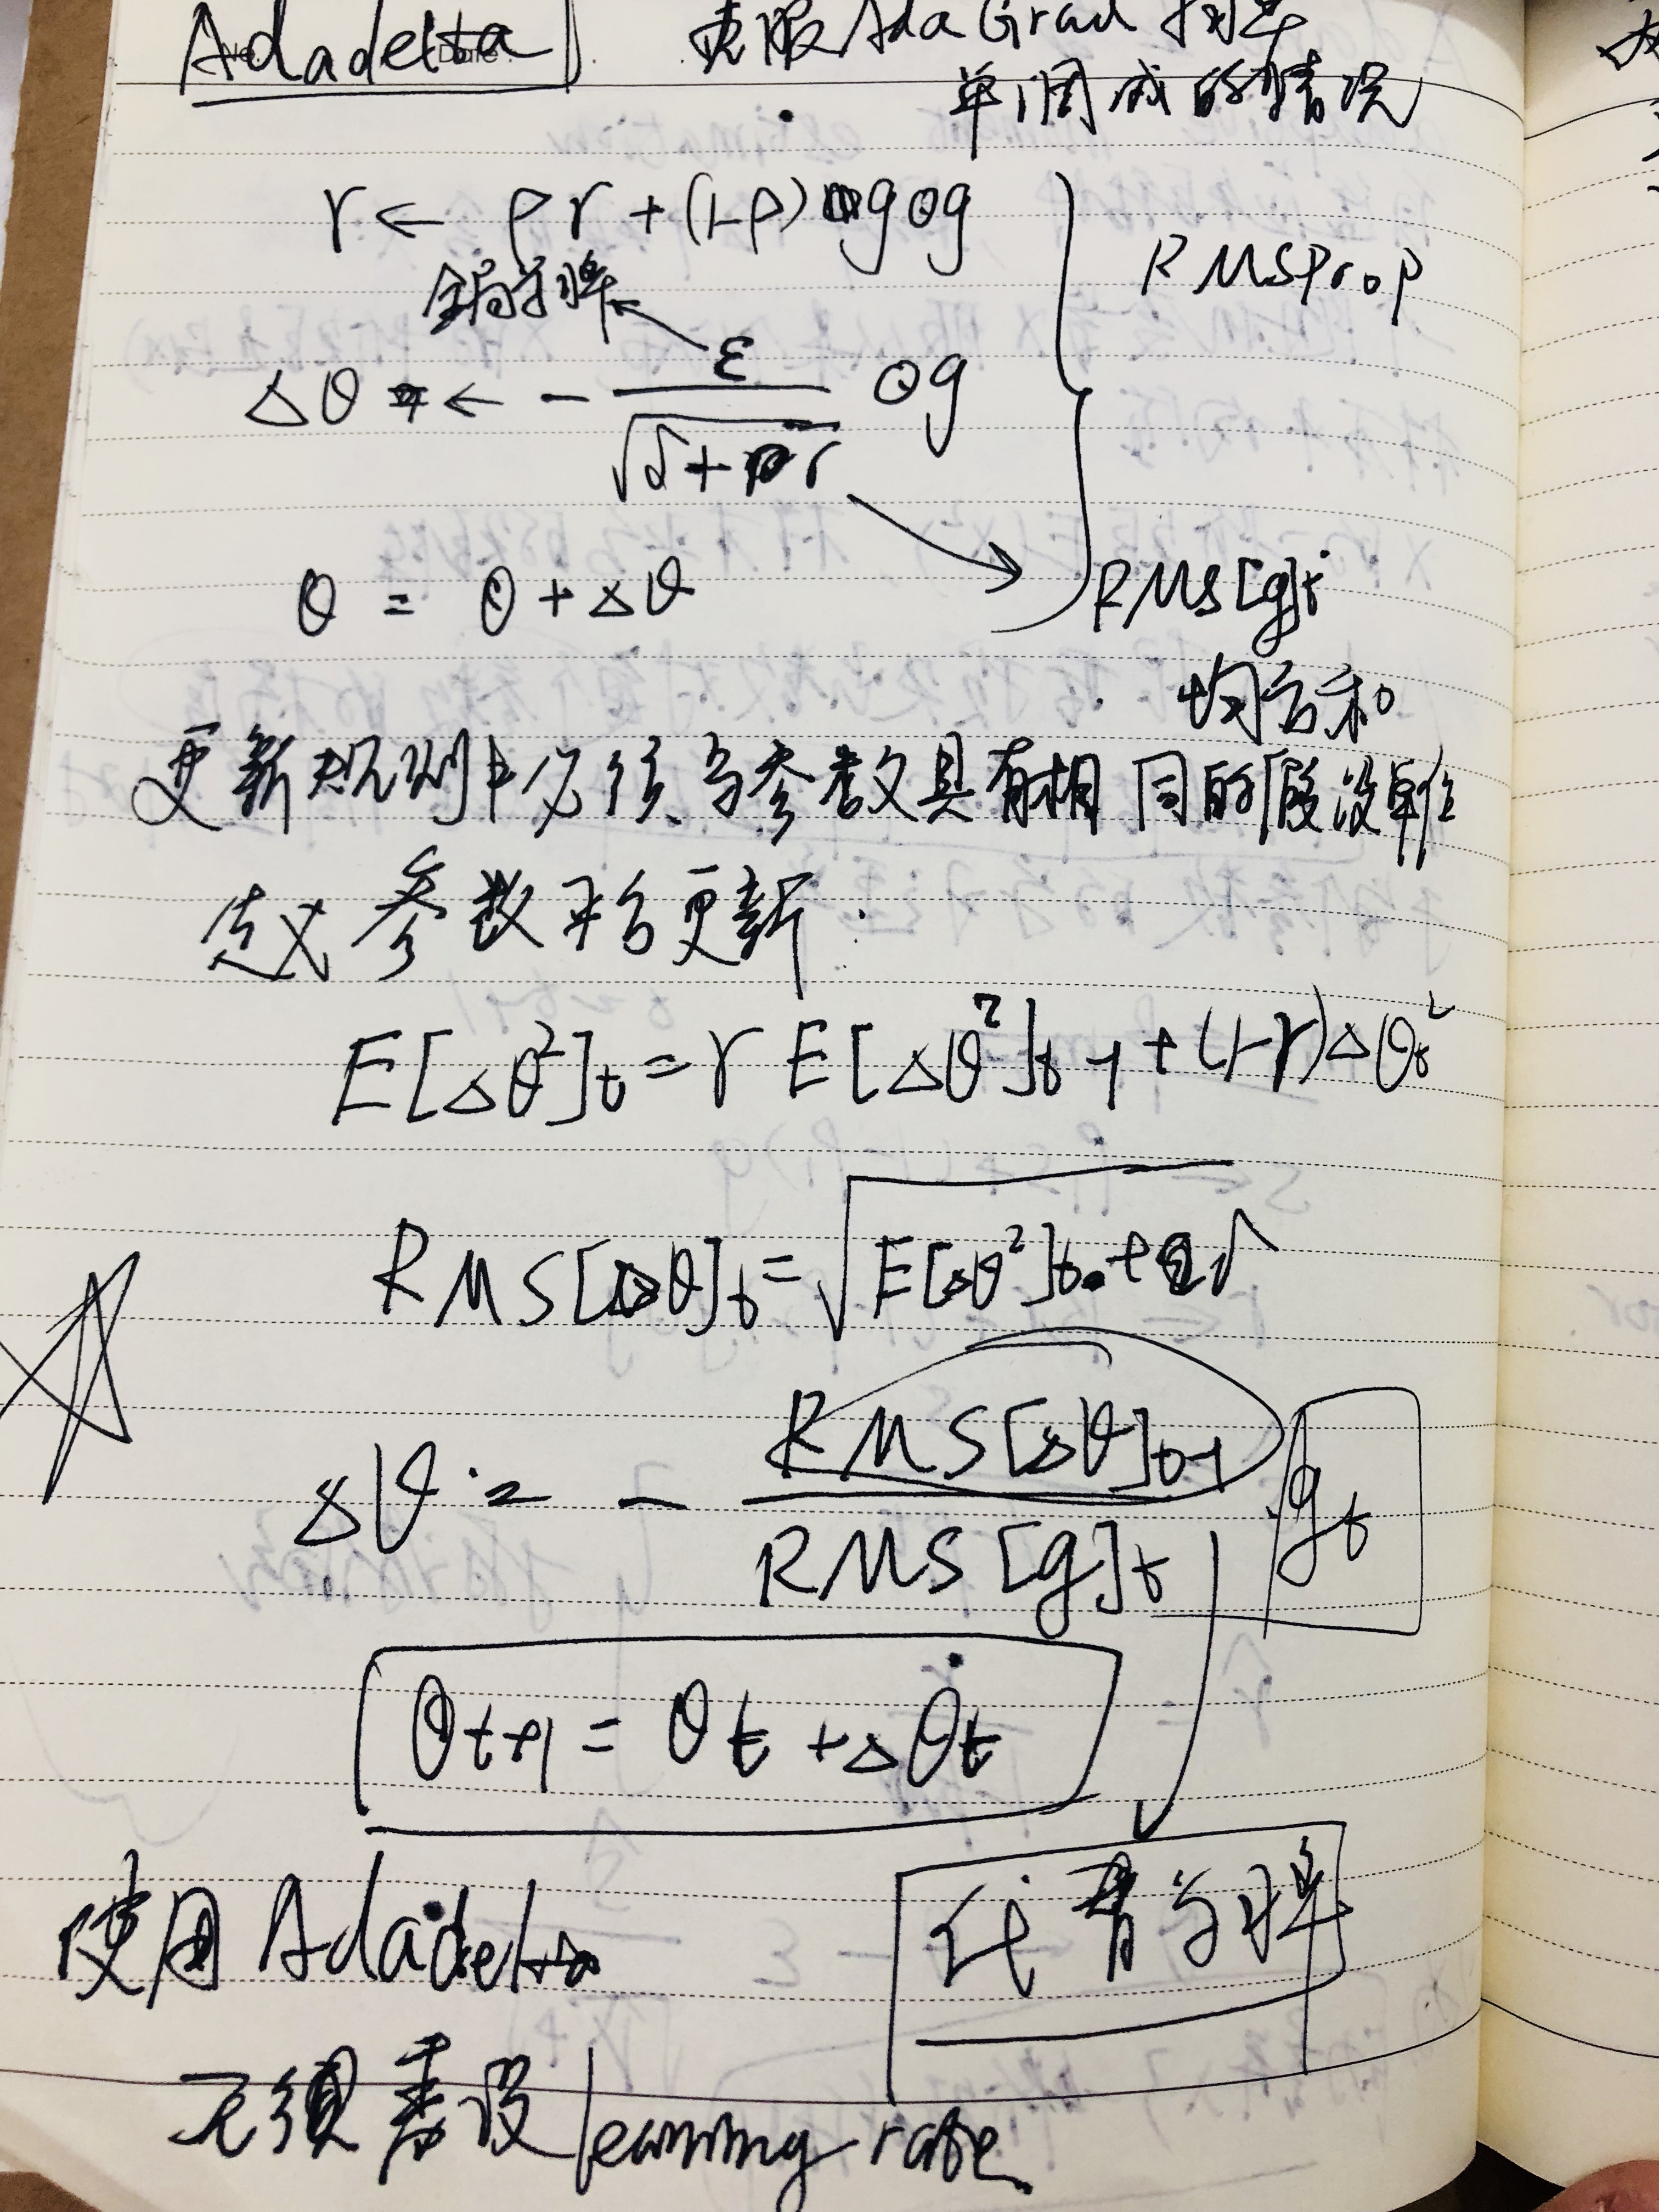 Adadelta 克服AdaGrad 学习率
单调减的情况
r ← ρr + (1-ρ) g⊙g
全局学习率
RMSProp
Δθ ← - ε / √(δ+r) ⊙g
θ = θ + Δθ
RMS[g]t
均方和
更新规则中必须与参数具有相同的假设单位
定义参数平方更新:
E[Δθ²]t = r E[Δθ²]t-1 + (1-r)Δθt²
RMS[Δθ]t = √(E[Δθ²]t + δ)
Δθ = - RMS[Δθ]t-1 / RMS[g]t gt
θt+1 = θt + Δθt
代替学习率
使用 Adadelta
无须预设 learning rate